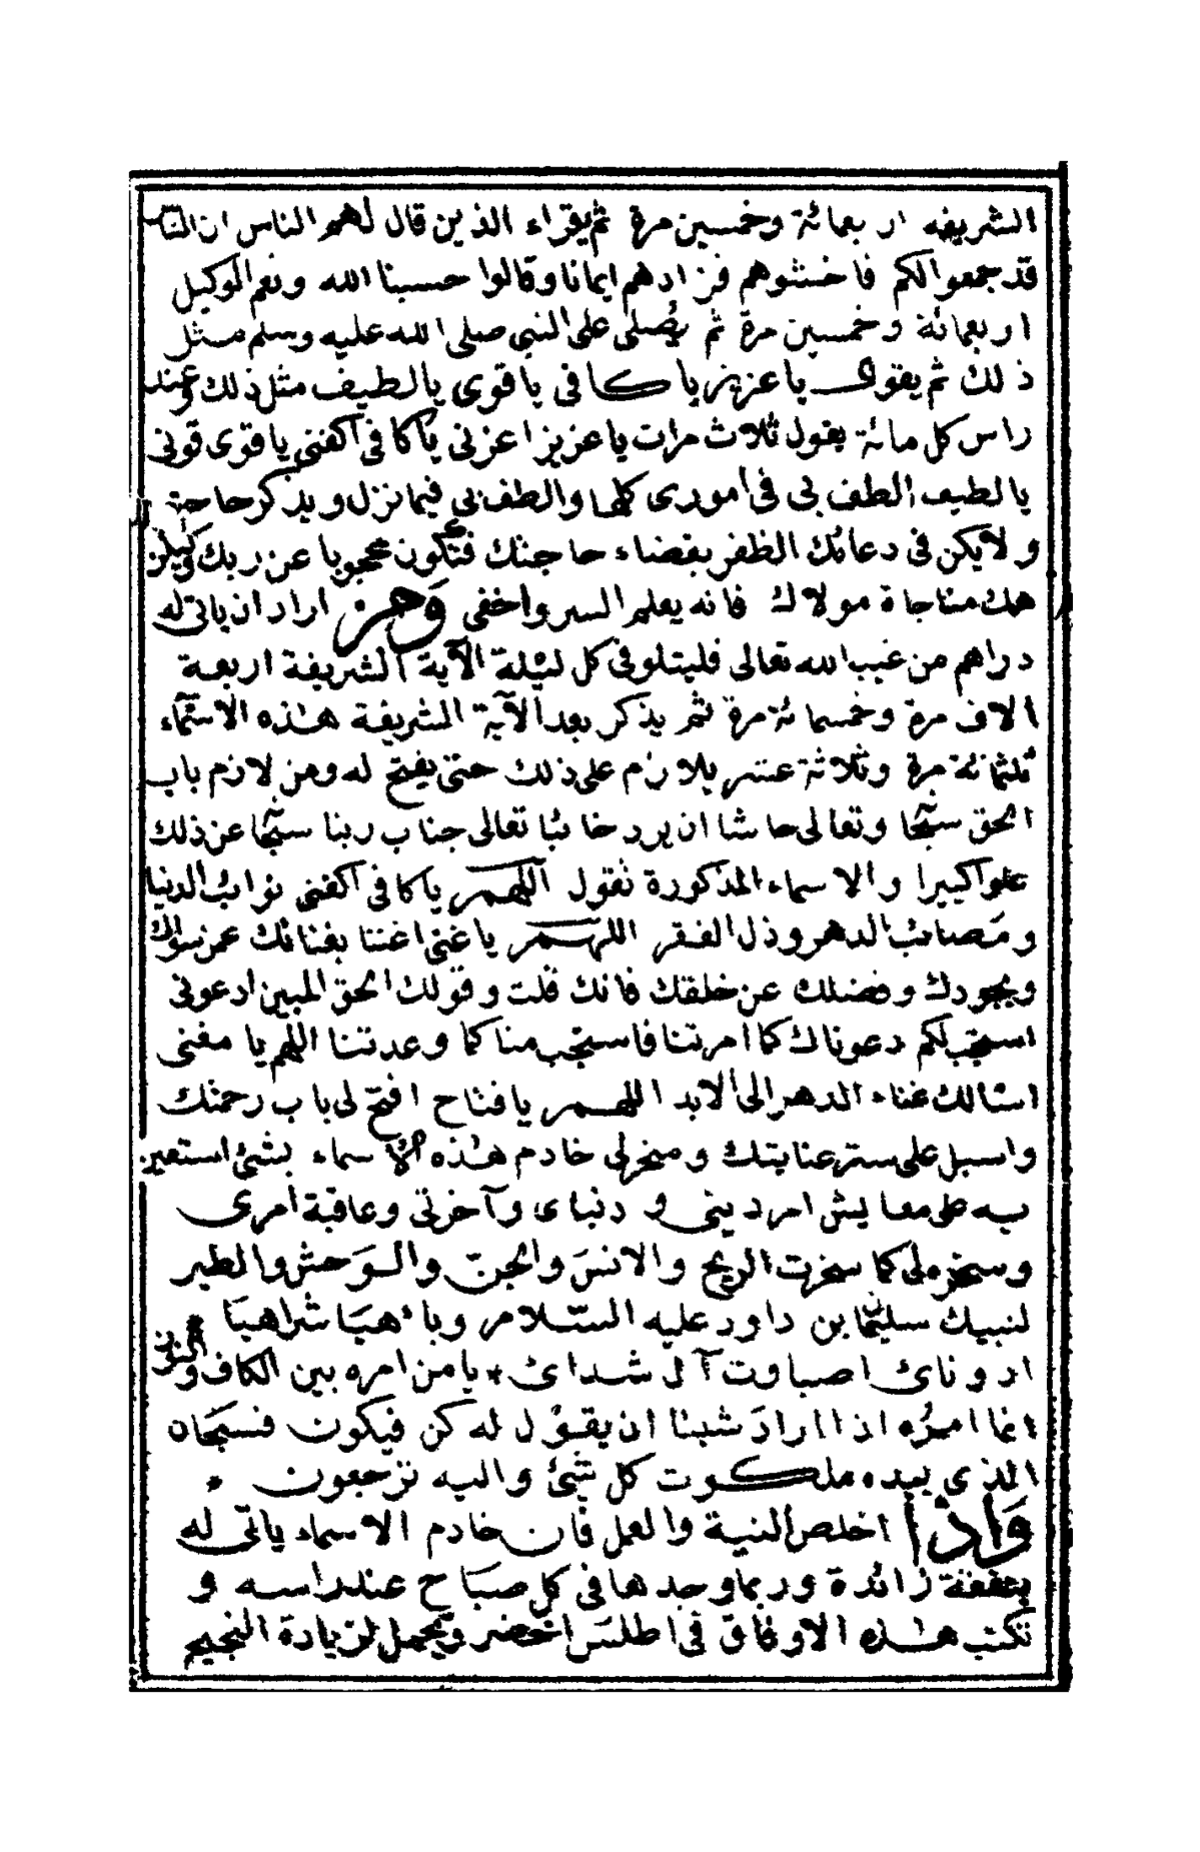 الشريفه اربعمائة وخمسين مرة ثم يقراء الذين قال لهم الناس ان الناس
قد جمعوا لكم فاخشوهم فزادهم ايمانا وقالوا حسبنا الله ونعم الوكيل
اربعمائة وخمسين مرة ثم يُصلى على النبى صلى الله عليه وسلم مثل
ذلك ثم يقول يا عزيز يا كافى يا قوى يا لطيف مثل ذلك وعند
راس كل مائة يقول ثلاث مرات يا عزيز اعزنى يا كافى اكفنى يا قوى قونى
يا لطيف الطف بى فى امورى كلها والطف بى فيما نزل ويذكر حاجته
ولا يكن فى دعائك الظفر بقضاء حاجتك فتكون محجوبا عن ربك وليكن
همك مناجاة مولاك فانه يعلم السر واخفى ومن اراد ان ياتى له
دراهم من غيب الله تعالى فليتلو فى كل ليلة الآية الشريفة اربعة
الاف مرة وخمسمائة مرة ثم يذكر بعد الآية الشريفة هذه الاسماء
ثلثمائة مرة وثلاثة عشر يلازم على ذلك حتى يفتح له ومن لازم باب
الحق سبحا وتعالى حاشا ان يرد خائبا تعالى جناب ربنا سبحا عن ذلك
علوا كبيرا والاسماء المذكورة تقول اللهم يا كافى اكفنى نوائب الدنيا
ومصائب الدهر وذل الفقر اللهم يا غنى اغننا بغنائك عمن سواك
وبجودك وفضلك عن خلقك فانك قلت وقولك الحق المبين ادعونى
استجب لكم دعوناك كما امرتنا فاستجب منا كما وعدتنا اللهم يا مغنى
اسالك غناء الدهر الى الابد اللهم يا فتاح افتح لى باب رحمتك
واسبل على ستر عنايتك وسخر لى خادم هذه الاسماء بشئ استعين
به على معايش امر دينى و دنياى وآخرتى وعاقبة امرى
وسخره لى كما سخرت الريح والانس والجن والوحش والطير
لنبيك سليمان بن داود عليه السلام وباهيا شراهيا
ادوناى اصباوت آل شداى * يا من امره بين الكاف والنون
انما امره اذا اراد شيئا ان يقول له كن فيكون فسبحان
الذى بيده ملكوت كل شئ واليه ترجعون *
واذا اخلص النية والعمل فان خادم الاسماء ياتى له
بنفقة زائدة وربما وجدها فى كل صباح عند راسه و
تكتب هذه الاوفاق فى اطلس اخضر وتحمل لزيادة النجيح